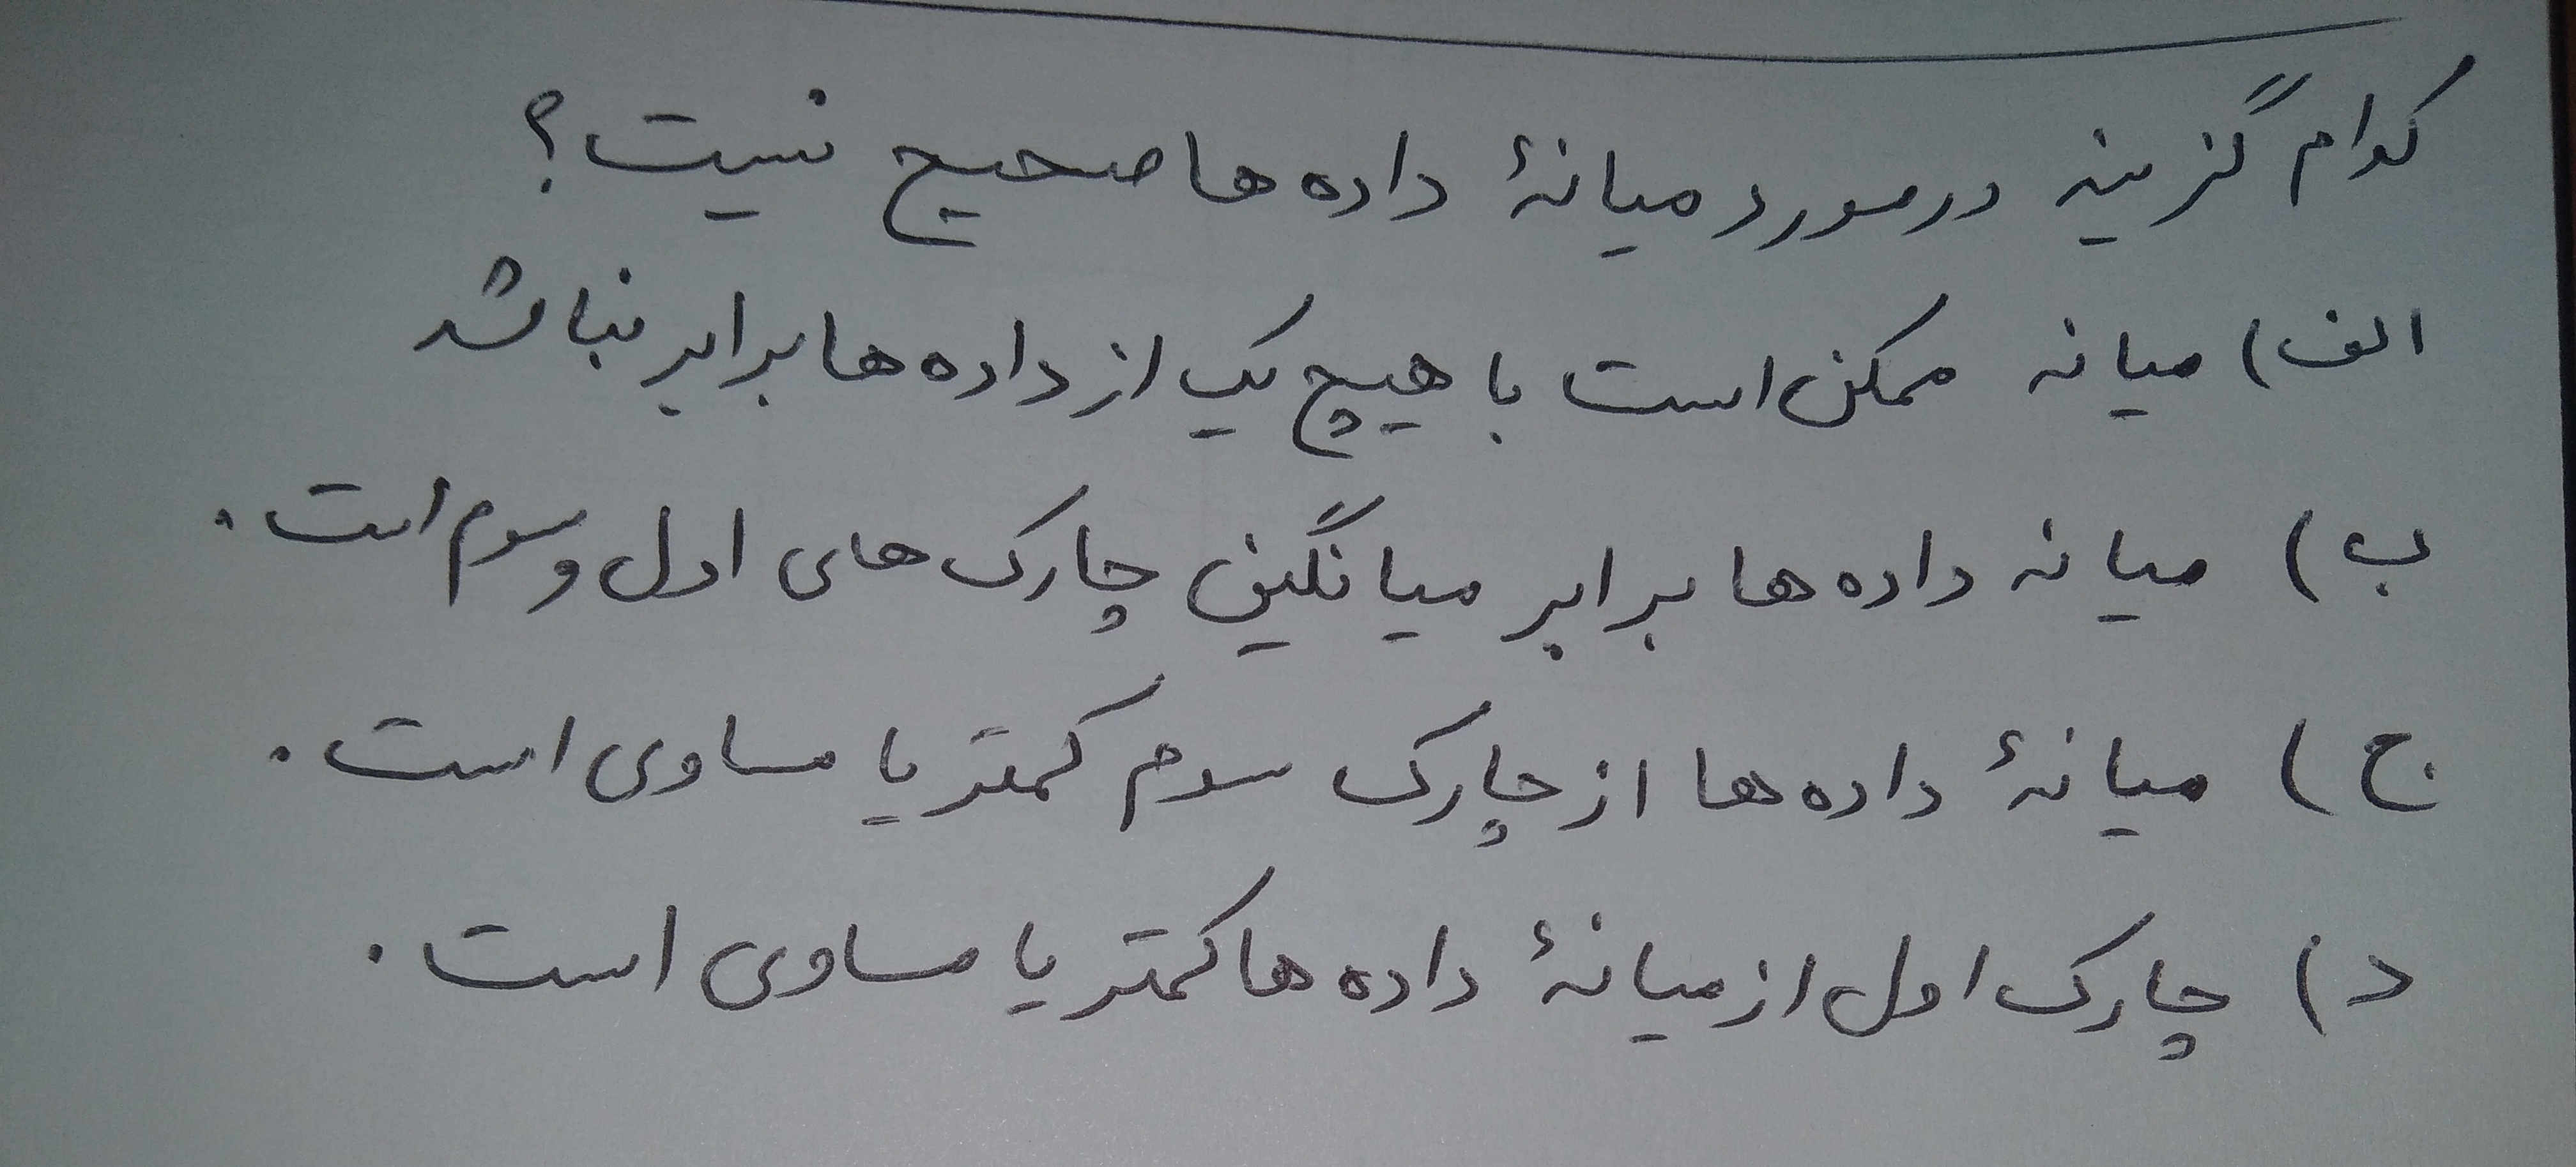 کدام گزینه در مورد میانهٔ داده ها صحیح نیست؟
الف) میانه ممکن است با هیچ یک از داده ها برابر نباشد
ب) میانه داده ها برابر میانگین چارک های اول و سوم است.
ج) میانهٔ داده ها از چارک سوم کمتر یا مساوی است.
د) چارک اول از میانهٔ داده ها کمتر یا مساوی است.